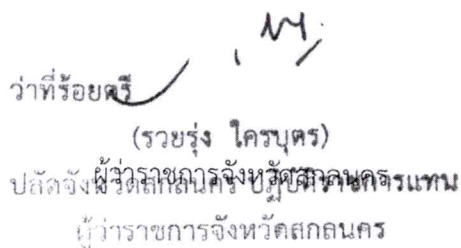 ว่าที่ร้อยตรี
(รวยรุ่ง ใครบุตร)
ผู้ว่าราชการจังหวัดสกลนคร
ปลัดจังหวัดสกลนคร ปฏิบัติราชการแทน
ผู้ว่าราชการจังหวัดสกลนคร